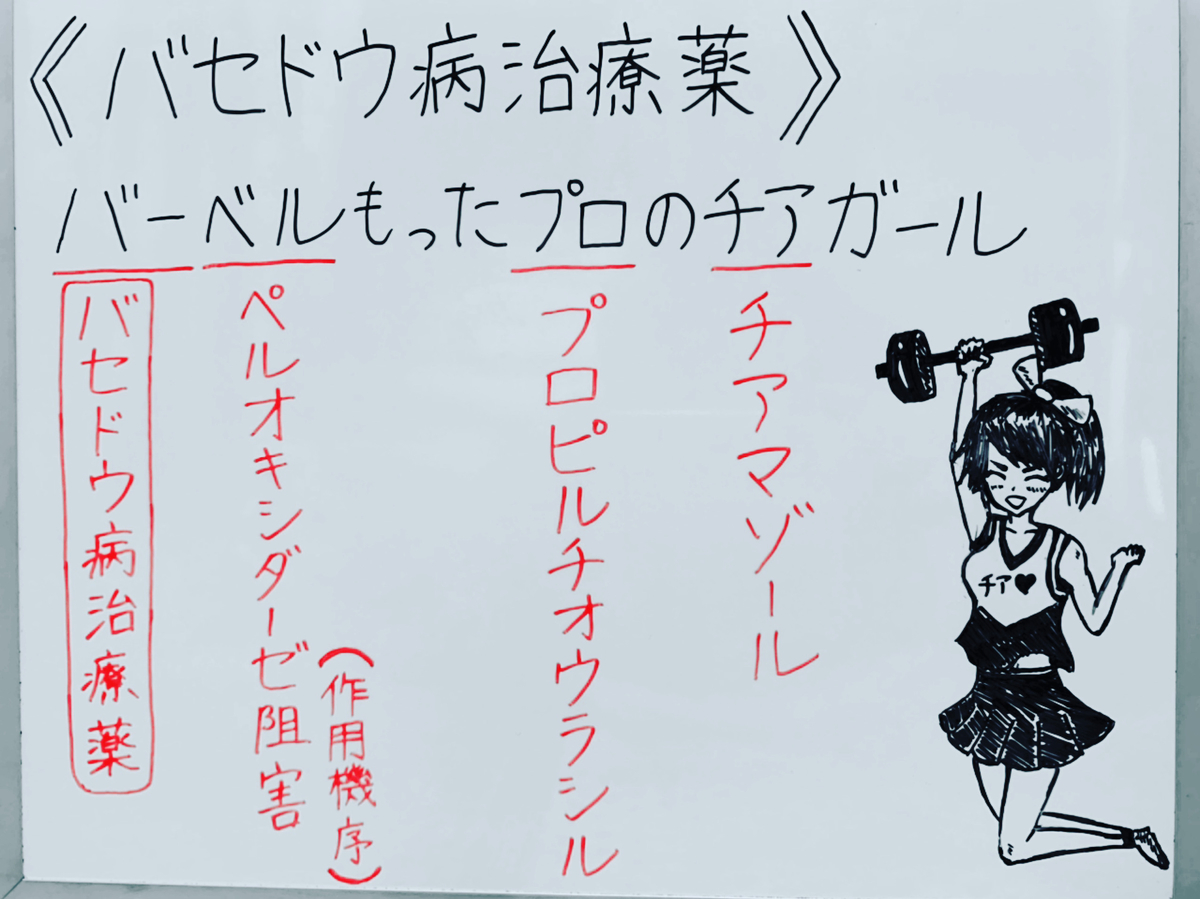 《バセドウ病治療薬》
バーベルもったプロのチアガール
バセドウ病治療薬
ペルオキシダーゼ阻害
(作用機序)
プロピルチオウラシル
チアマゾール
チア♥